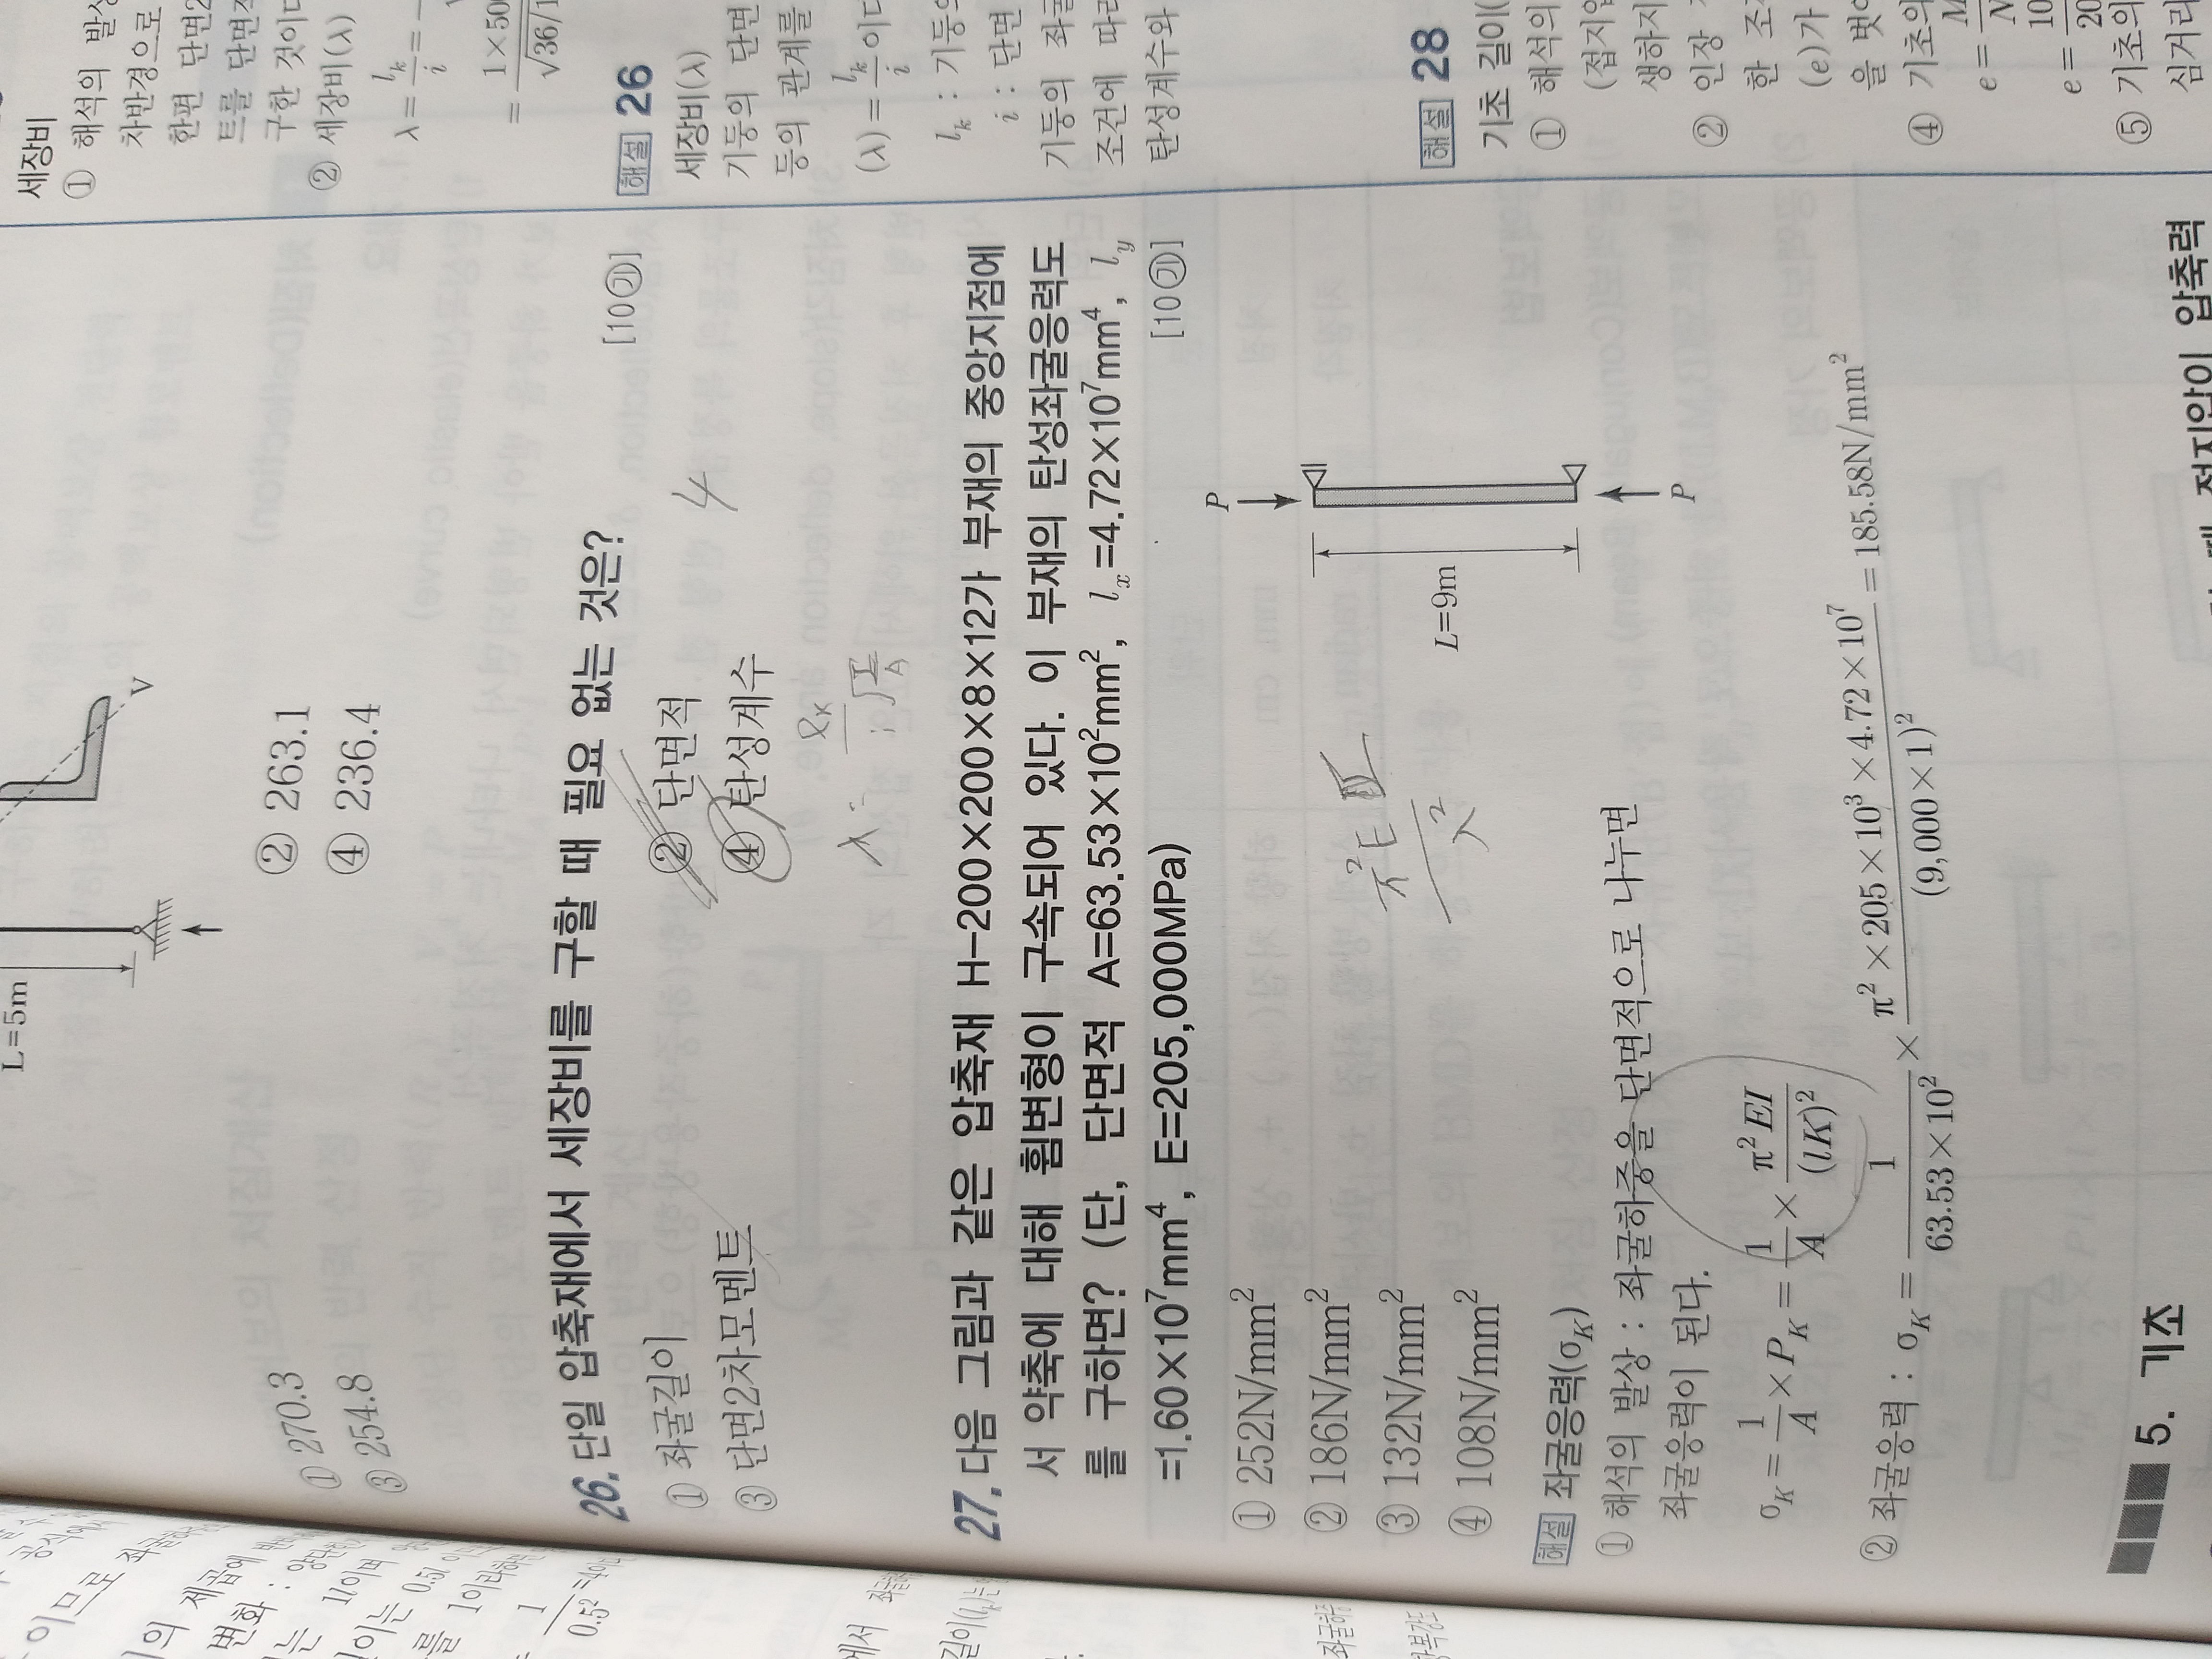 L=5m
V
① 270.3
② 263.1
③ 254.8
④ 236.4
26. 단일 압축재에서 세장비를 구할 때 필요 없는 것은?
[10㉮]
① 좌굴길이
② 단면적
③ 단면2차모멘트
④ 탄성계수
4
27. 다음 그림과 같은 압축재 H-200×200×8×12가 부재의 중앙지점에
서 약축에 대해 휨변형이 구속되어 있다. 이 부재의 탄성좌굴응력도
를 구하면? (단, 단면적 A=63.53×10²mm², lx=4.72×10⁷mm⁴, ly
=1.60×10⁷mm⁴, E=205,000MPa)
① 252N/mm²
② 186N/mm²
③ 132N/mm²
④ 108N/mm²
P
L=9m
P
해설 좌굴응력(σK)
① 해석의 발상 : 좌굴하중을 단면적으로 나누면
좌굴응력이 된다.
σK = 1/A × PK = 1/A × π²EI/(lK)²
② 좌굴응력 : σK = 1/(63.53×10²) × (π²×205×10³×4.72×10⁷)/(9,000×1)² = 185.58N/mm²
5. 기초
세장비
① 해석의 발상
차반경으로
한편 단면2
트를 단면적
구한 것이다
② 세장비(λ)
λ = lk/i =
해설 26
세장비(λ)
기둥의 단면
등의 관계를
(λ) = lk/i 이다
lk : 기둥의
i : 단면
기둥의 좌굴
조건에 따라
탄성계수와
해설 28
기초 길이(
① 해석의
(접지압
생하지
② 인장
한 조
(e)가
을 벗어
④ 기초의
e =
e =
⑤ 기초의
심거리